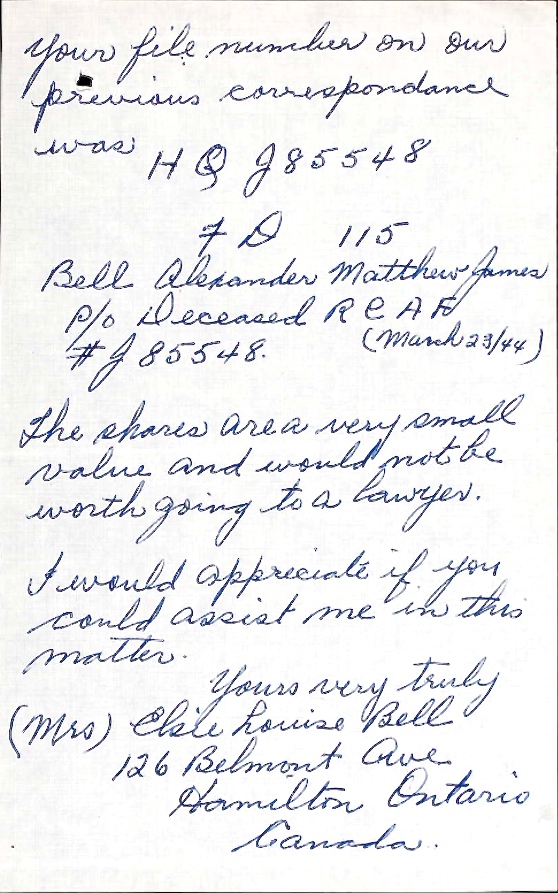 Your file number on our
previous correspondance
was
H Q J85548
7 D 115
Bell Alexander Matthew James
P/o Deceased R C A F
(March 23/44)
# J 85548.
The shares are a very small
value and would not be
worth going to a lawyer.
I would appreciate if you
could assist me in this
matter.
Yours very truly
(Mrs) Elsie Louise Bell
126 Belmont Ave
Hamilton Ontario
Canada.